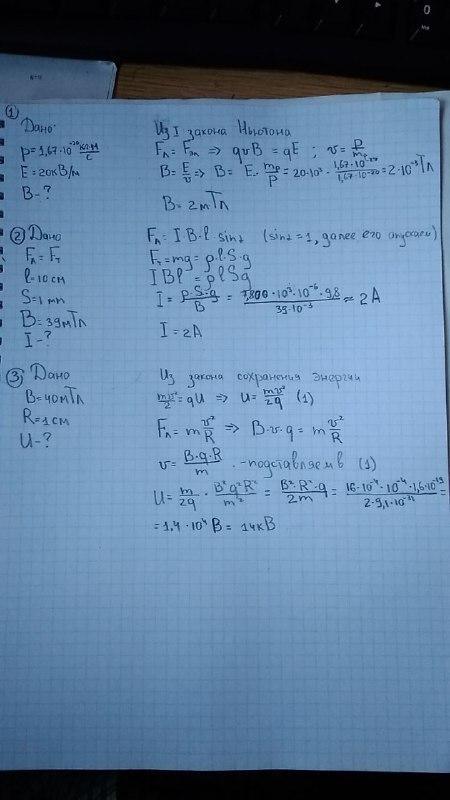 0
①
Дано:
p = 1,67·10⁻²⁰ кг·м/с
E = 20кВ/м
B - ?
Из I закона Ньютона
Fл = Fэл => qυB = qE ; υ = p/mp
B = E/υ => B = E· mp/p = 20·10³ · 1,67·10⁻²⁷/1,67·10⁻²⁰ = 2·10⁻³ Тл
B = 2мТл
② Дано
Fл = Fт
l = 10 см
S = 1 мм
B = 39мТл
I - ?
Fл = I B·l·sinα (sinα = 1, далее его опускаем)
Fт = mg = ρ·l·S·g
I Bl = ρlSg
I = ρ·S·g/B = 7,800·10³·10⁻⁶·9,8/39·10⁻³ ≈ 2A
I = 2A
③ Дано
B = 40мТл
R = 1см
U - ?
Из закона сохранения энергии
mυ²/2 = qU => U = mυ²/2q (1)
Fл = m υ²/R => B·υ·q = m υ²/R
υ = B·q·R/m - подставляем в (1)
U = m/2q · B²q²R²/m² = B²·R²·q/2m = 16·10⁻⁴·10⁻⁴·1,6·10⁻¹⁹/2·9,1·10⁻³¹ =
= 1,4·10⁴ В = 14кВ